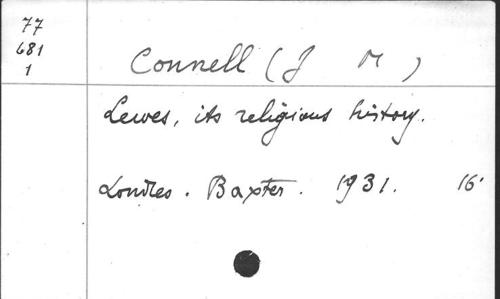 77
681
1
Connell (J M)
Lewes, its religious history.
Londres. Baxter. 1931. 16°